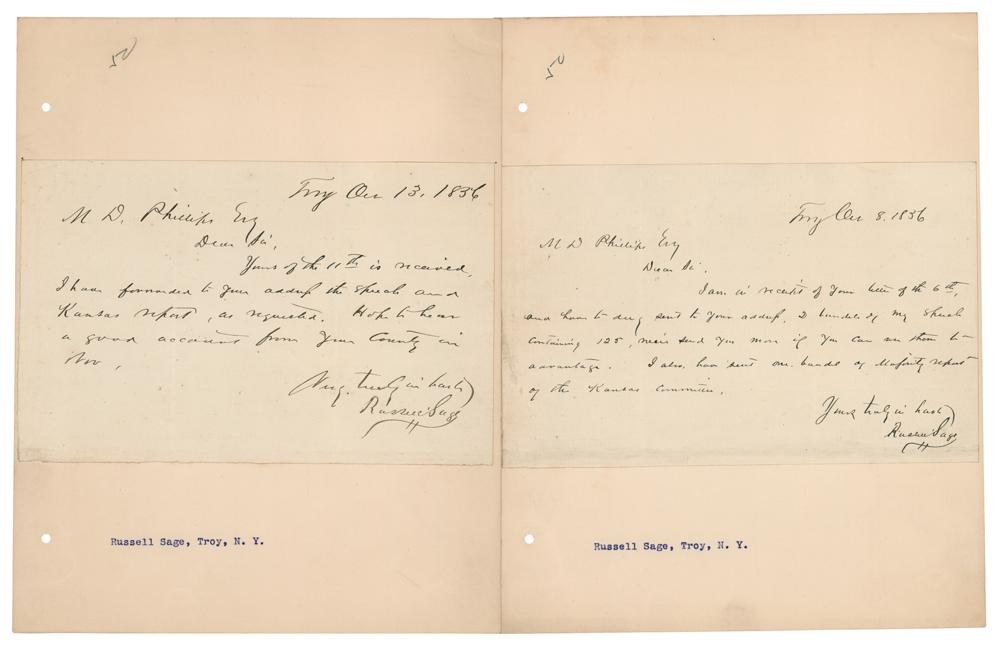 50
Troy Oct 13, 1856
M D. Phillips Esq
Dear Sir,
Yours of the 11th is received,
I have forwarded to your address the speech and
Kansas report, as requested. Hope to hear
a good account from your County in
Nov,
Very truly in haste
Russell Sage
Russell Sage, Troy, N. Y.
50
Troy Oct 8. 1856
M D Phillips Esq
Dear Sir.
I am in receipt of your letter of the 6th,
and have to day sent to your address, 2 bundles of my Speech
containing 125, will send you more if you can use them to
advantage. I also have sent one bundle of Majority report
of the Kansas Committee,
Yours truly in haste
Russell Sage
Russell Sage, Troy, N. Y.